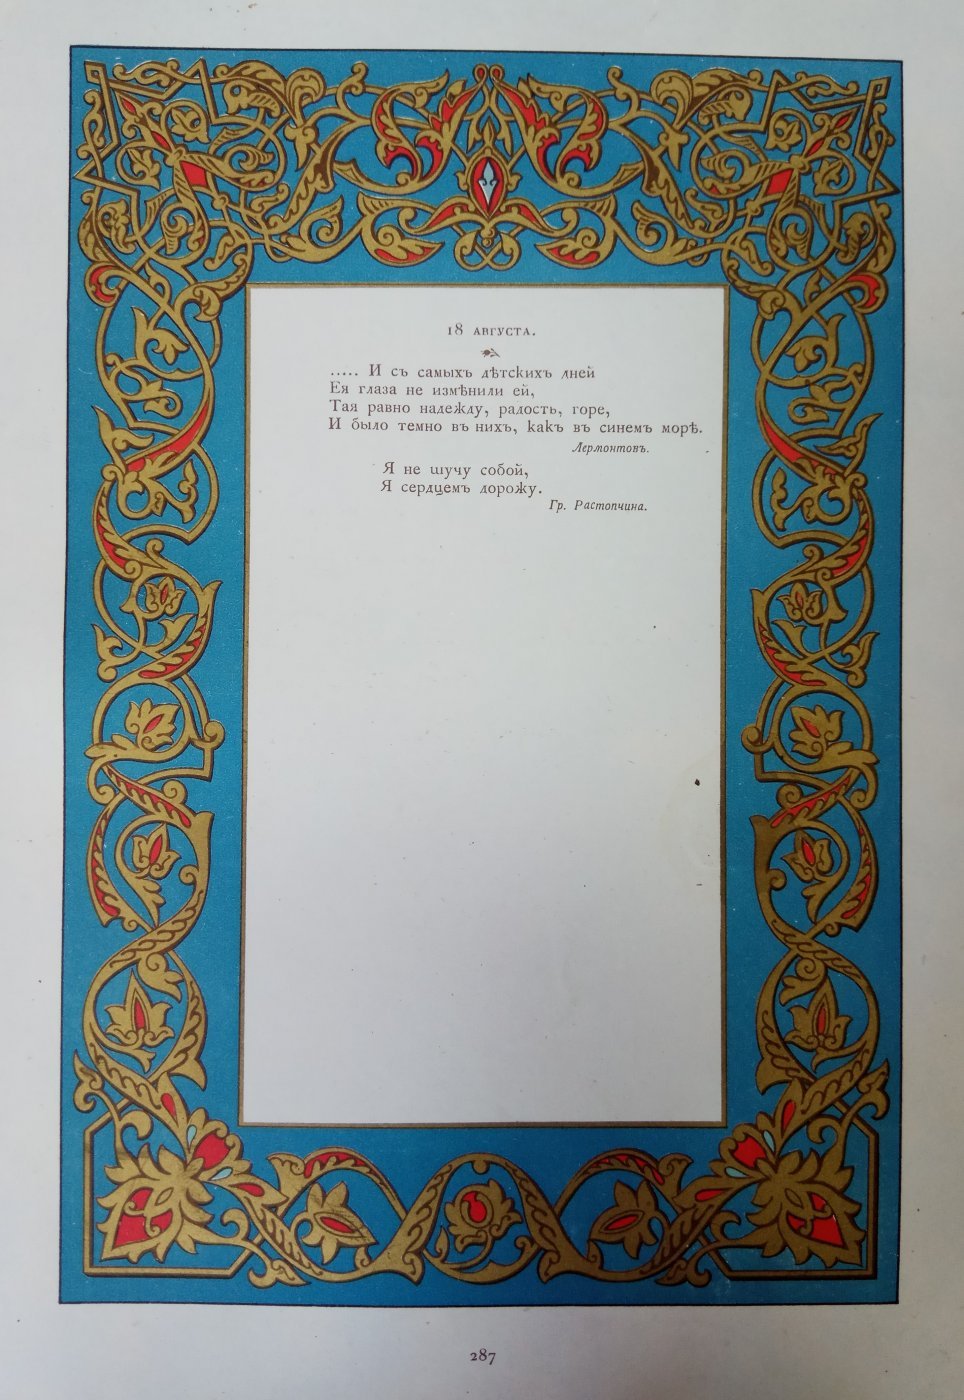 18 августа.
..... И съ самыхъ дѣтскихъ дней
Ея глаза не измѣнили ей,
Тая равно надежду, радость, горе,
И было темно въ нихъ, какъ въ синемъ морѣ.
Лермонтовъ.
Я не шучу собой,
Я сердцемъ дорожу.
Гр. Растопчина.
287